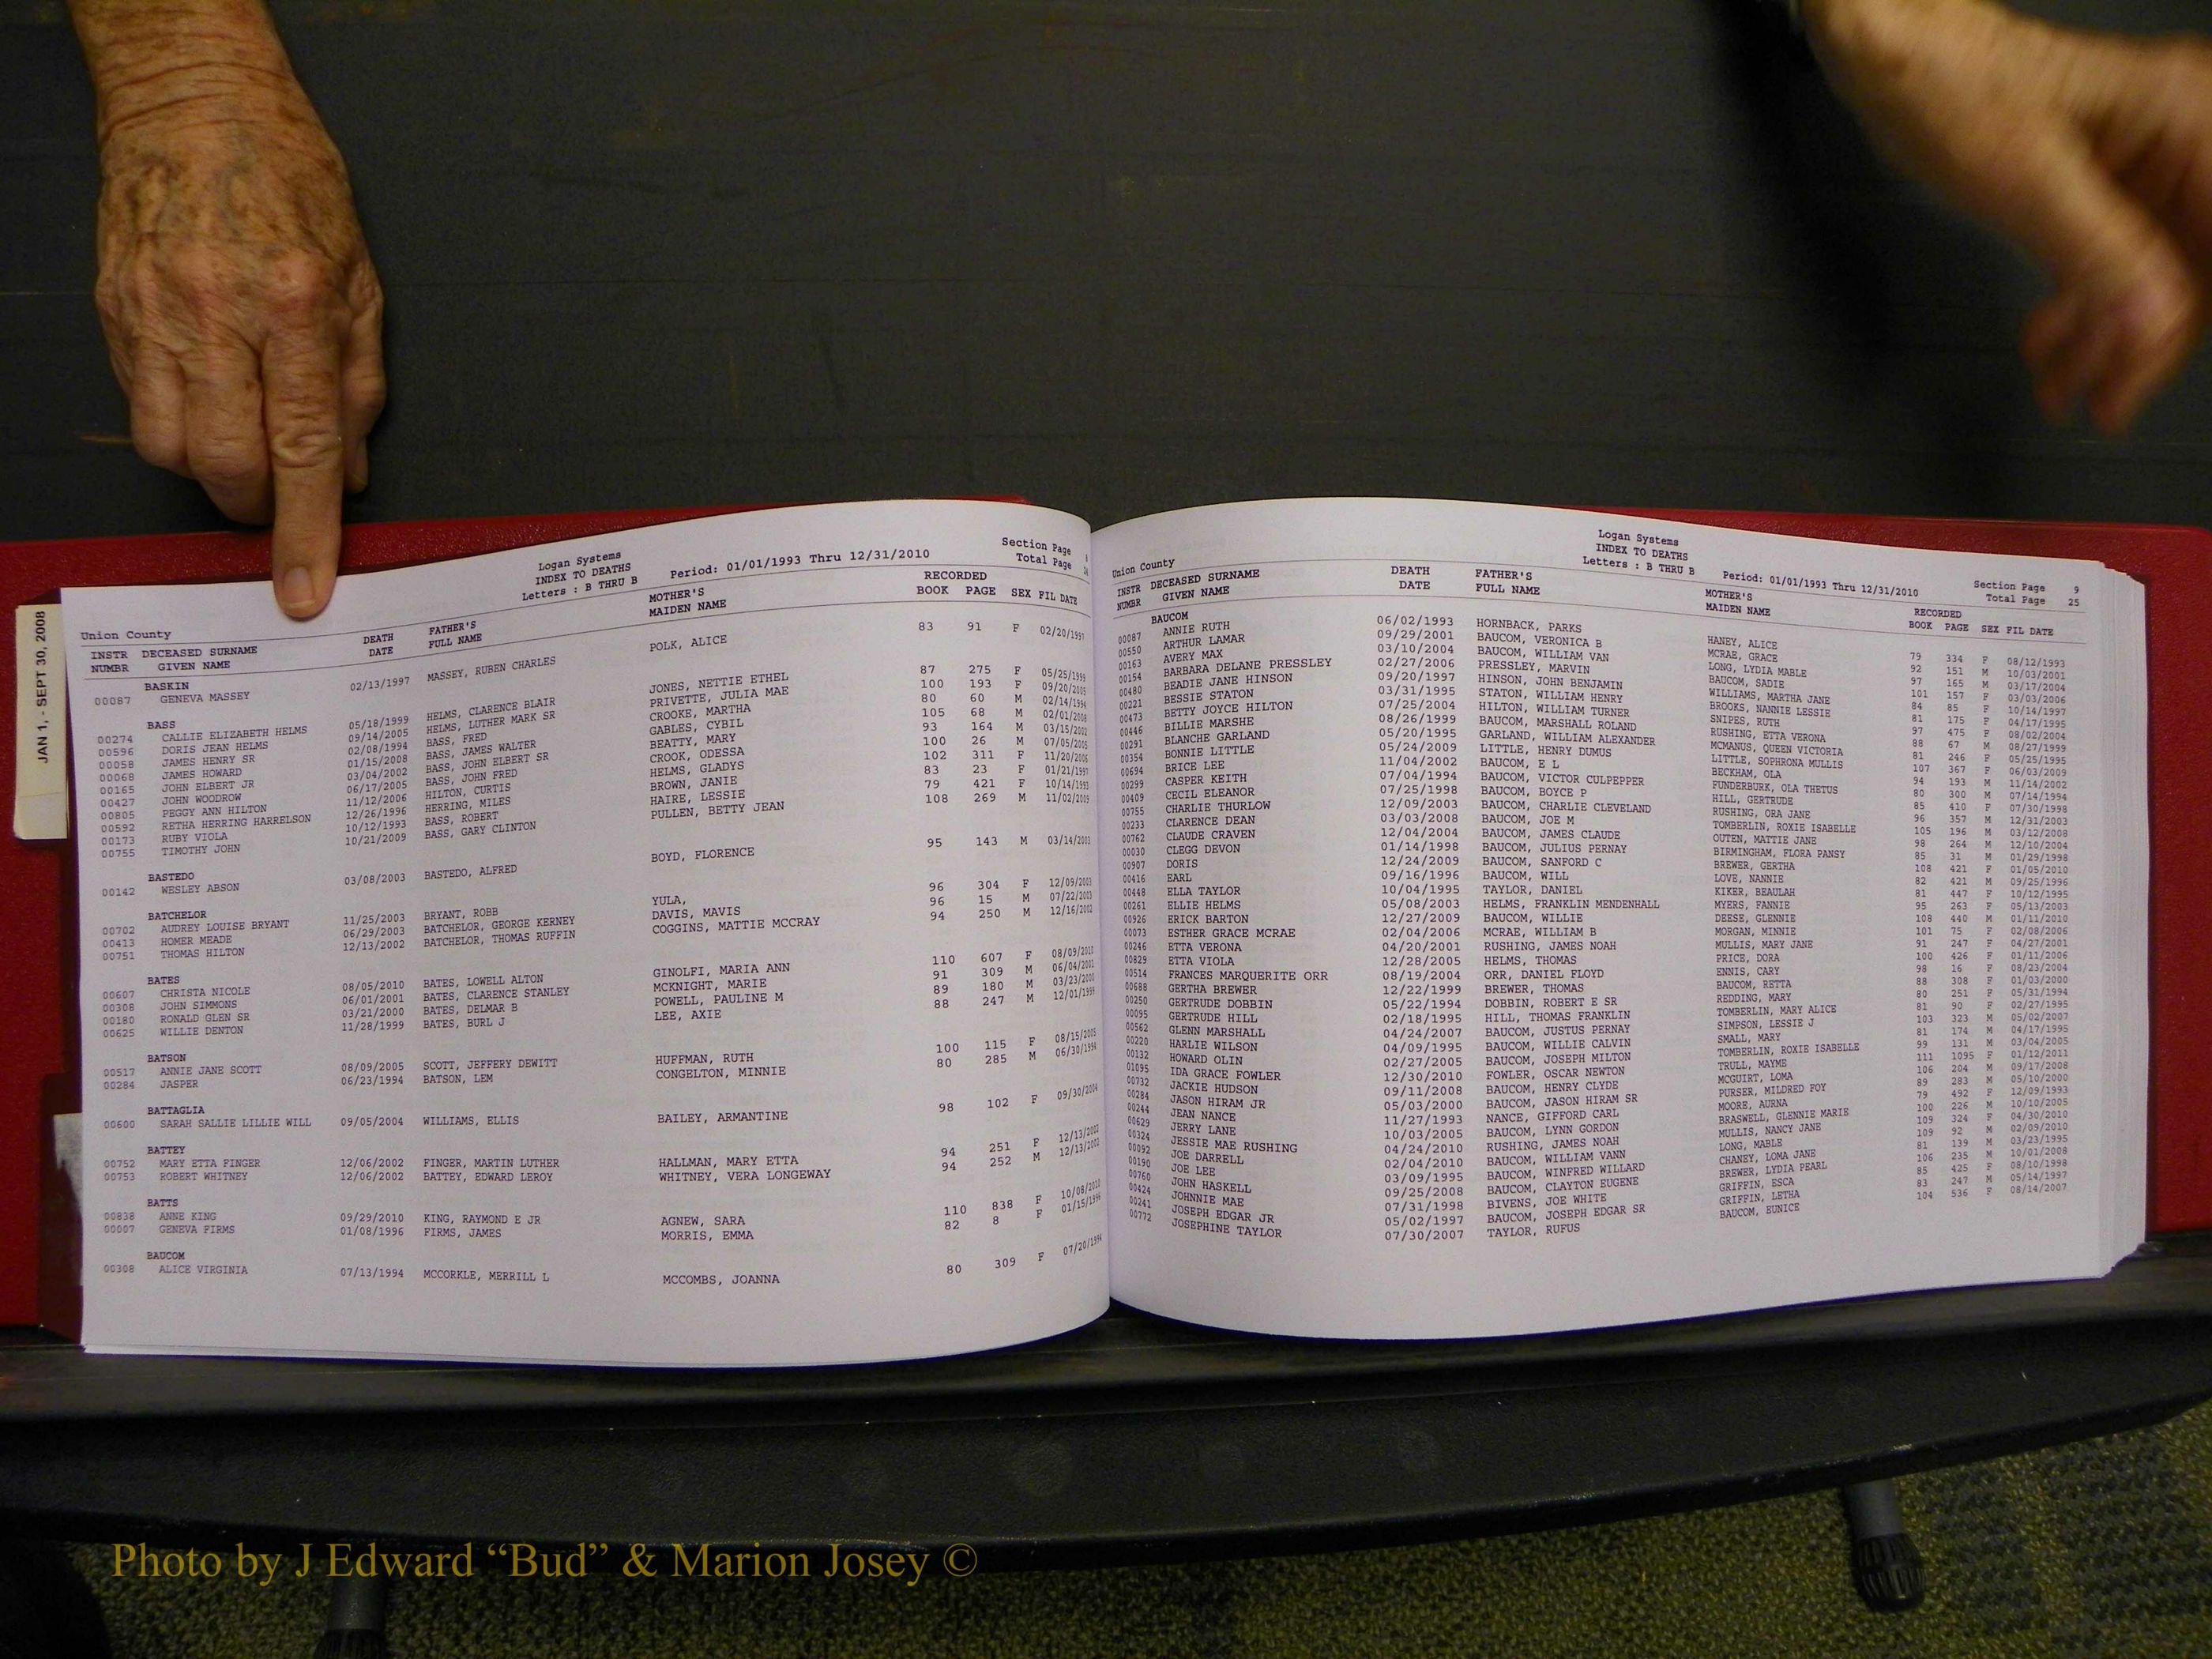 Logan Systems
INDEX TO DEATHS
Letters : B THRU B Period: 01/01/1993 Thru 12/31/2010
Section Page
Total Page
Union County
INSTR NUMBR DECEASED SURNAME GIVEN NAME DEATH DATE FATHER'S FULL NAME MOTHER'S MAIDEN NAME RECORDED BOOK PAGE SEX FIL DATE
BASKIN
00087 GENEVA MASSEY 02/13/1997 MASSEY, RUBEN CHARLES POLK, ALICE 83 91 F 02/20/1997
BASS
00274 CALLIE ELIZABETH HELMS 05/18/1999 HELMS, CLARENCE BLAIR JONES, NETTIE ETHEL 87 275 F 05/25/1999
00596 DORIS JEAN HELMS 09/14/2005 HELMS, LUTHER MARK SR PRIVETTE, JULIA MAE 100 193 F 09/20/2005
00058 JAMES HENRY SR 02/08/1994 BASS, FRED CROOKE, MARTHA 80 60 M 02/14/1994
00068 JAMES HOWARD 01/15/2008 BASS, JAMES WALTER GABLES, CYBIL 105 68 M 02/01/2008
00165 JOHN ELBERT JR 03/04/2002 BASS, JOHN ELBERT SR BEATTY, MARY 93 164 M 03/15/2002
00427 JOHN WOODROW 06/17/2005 BASS, JOHN FRED CROOK, ODESSA 100 26 M 07/05/2005
00805 PEGGY ANN HILTON 11/12/2006 HILTON, CURTIS HELMS, GLADYS 102 311 F 11/20/2006
00592 RETHA HERRING HARRELSON 12/26/1996 HERRING, MILES BROWN, JANIE 83 23 F 01/21/1997
00173 RUBY VIOLA 10/12/1993 BASS, ROBERT HAIRE, LESSIE 79 421 F 10/14/1993
00755 TIMOTHY JOHN 10/21/2009 BASS, GARY CLINTON PULLEN, BETTY JEAN 108 269 M 11/02/2009
BASTEDO
00142 WESLEY ABSON 03/08/2003 BASTEDO, ALFRED BOYD, FLORENCE 95 143 M 03/14/2003
BATCHELOR
00702 AUDREY LOUISE BRYANT 11/25/2003 BRYANT, ROBB YULA, 96 304 F 12/09/2003
00413 HOMER MEADE 06/29/2003 BATCHELOR, GEORGE KERNEY DAVIS, MAVIS 96 15 M 07/22/2003
00751 THOMAS HILTON 12/13/2002 BATCHELOR, THOMAS RUFFIN COGGINS, MATTIE MCCRAY 94 250 M 12/16/2002
BATES
00607 CHRISTA NICOLE 08/05/2010 BATES, LOWELL ALTON GINOLFI, MARIA ANN 110 607 F 08/09/2010
00308 JOHN SIMMONS 06/01/2001 BATES, CLARENCE STANLEY MCKNIGHT, MARIE 91 309 M 06/04/2001
00180 RONALD GLEN SR 03/21/2000 BATES, DELMAR B POWELL, PAULINE M 89 180 M 03/23/2000
00625 WILLIE DENTON 11/28/1999 BATES, BURL J LEE, AXIE 88 247 M 12/01/1999
BATSON
00517 ANNIE JANE SCOTT 08/09/2005 SCOTT, JEFFERY DEWITT HUFFMAN, RUTH 100 115 F 08/15/2005
00284 JASPER 06/23/1994 BATSON, LEM CONGELTON, MINNIE 80 285 M 06/30/1994
BATTAGLIA
00600 SARAH SALLIE LILLIE WILL 09/05/2004 WILLIAMS, ELLIS BAILEY, ARMANTINE 98 102 F 09/30/2004
BATTEY
00752 MARY ETTA FINGER 12/06/2002 FINGER, MARTIN LUTHER HALLMAN, MARY ETTA 94 251 F 12/13/2002
00753 ROBERT WHITNEY 12/06/2002 BATTEY, EDWARD LEROY WHITNEY, VERA LONGEWAY 94 252 M 12/13/2002
BATTS
00838 ANNE KING 09/29/2010 KING, RAYMOND E JR AGNEW, SARA 110 838 F 10/08/2010
00007 GENEVA FIRMS 01/08/1996 FIRMS, JAMES MORRIS, EMMA 82 8 F 01/15/1996
BAUCOM
00308 ALICE VIRGINIA 07/13/1994 MCCORKLE, MERRILL L MCCOMBS, JOANNA 80 309 F 07/20/1994
JAN 1, - SEPT 30, 2008
Logan Systems
INDEX TO DEATHS
Letters : B THRU B Period: 01/01/1993 Thru 12/31/2010
Section Page 9
Total Page 25
Union County
INSTR NUMBR DECEASED SURNAME GIVEN NAME DEATH DATE FATHER'S FULL NAME MOTHER'S MAIDEN NAME RECORDED BOOK PAGE SEX FIL DATE
BAUCOM
00087 ANNIE RUTH 06/02/1993 HORNBACK, PARKS HANEY, ALICE 79 334 F 08/12/1993
00550 ARTHUR LAMAR 09/29/2001 BAUCOM, VERONICA B MCRAE, GRACE 92 151 M 10/03/2001
00163 AVERY MAX 03/10/2004 BAUCOM, WILLIAM VAN LONG, LYDIA MABLE 97 165 M 03/17/2004
00154 BARBARA DELANE PRESSLEY 02/27/2006 PRESSLEY, MARVIN BAUCOM, SADIE 101 157 F 03/03/2006
00480 BEADIE JANE HINSON 09/20/1997 HINSON, JOHN BENJAMIN WILLIAMS, MARTHA JANE 84 85 F 10/14/1997
00221 BESSIE STATON 03/31/1995 STATON, WILLIAM HENRY BROOKS, NANNIE LESSIE 81 175 F 04/17/1995
00473 BETTY JOYCE HILTON 07/25/2004 HILTON, WILLIAM TURNER SNIPES, RUTH 97 475 F 08/02/2004
00446 BILLIE MARSHE 08/26/1999 BAUCOM, MARSHALL ROLAND RUSHING, ETTA VERONA 88 67 M 08/27/1999
00291 BLANCHE GARLAND 05/20/1995 GARLAND, WILLIAM ALEXANDER MCMANUS, QUEEN VICTORIA 81 246 F 05/25/1995
00354 BONNIE LITTLE 05/24/2009 LITTLE, HENRY DUMUS LITTLE, SOPHRONA MULLIS 107 367 F 06/03/2009
00694 BRICE LEE 11/04/2002 BAUCOM, E L BECKHAM, OLA 94 193 M 11/14/2002
00299 CASPER KEITH 07/04/1994 BAUCOM, VICTOR CULPEPPER FUNDERBURK, OLA THETUS 80 300 M 07/14/1994
00409 CECIL ELEANOR 07/25/1998 BAUCOM, BOYCE P HILL, GERTRUDE 85 410 F 07/30/1998
00755 CHARLIE THURLOW 12/09/2003 BAUCOM, CHARLIE CLEVELAND RUSHING, ORA JANE 96 357 M 12/31/2003
00233 CLARENCE DEAN 03/03/2008 BAUCOM, JOE M TOMBERLIN, ROXIE ISABELLE 105 196 M 03/12/2008
00762 CLAUDE CRAVEN 12/04/2004 BAUCOM, JAMES CLAUDE OUTEN, MATTIE JANE 98 264 M 12/10/2004
00030 CLEGG DEVON 01/14/1998 BAUCOM, JULIUS PERNAY BIRMINGHAM, FLORA PANSY 85 31 M 01/29/1998
00907 DORIS 12/24/2009 BAUCOM, SANFORD C BREWER, GERTHA 108 421 F 01/05/2010
00416 EARL 09/16/1996 BAUCOM, WILL LOVE, NANNIE 82 421 M 09/25/1996
00448 ELLA TAYLOR 10/04/1995 TAYLOR, DANIEL KIKER, BEAULAH 81 447 F 10/12/1995
00261 ELLIE HELMS 05/08/2003 HELMS, FRANKLIN MENDENHALL MYERS, FANNIE 95 263 F 05/13/2003
00926 ERICK BARTON 12/27/2009 BAUCOM, WILLIE DEESE, GLENNIE 108 440 M 01/11/2010
00073 ESTHER GRACE MCRAE 02/04/2006 MCRAE, WILLIAM B MORGAN, MINNIE 101 75 F 02/08/2006
00246 ETTA VERONA 04/20/2001 RUSHING, JAMES NOAH MULLIS, MARY JANE 91 247 F 04/27/2001
00829 ETTA VIOLA 12/28/2005 HELMS, THOMAS PRICE, DORA 100 426 F 01/11/2006
00514 FRANCES MARQUERITE ORR 08/19/2004 ORR, DANIEL FLOYD ENNIS, CARY 98 16 F 08/23/2004
00688 GERTHA BREWER 12/22/1999 BREWER, THOMAS BAUCOM, RETTA 88 308 F 01/03/2000
00250 GERTRUDE DOBBIN 05/22/1994 DOBBIN, ROBERT E SR REDDING, MARY 80 251 F 05/31/1994
00095 GERTRUDE HILL 02/18/1995 HILL, THOMAS FRANKLIN TOMBERLIN, MARY ALICE 81 90 F 02/27/1995
00562 GLENN MARSHALL 04/24/2007 BAUCOM, JUSTUS PERNAY SIMPSON, LESSIE J 103 323 M 05/02/2007
00220 HARLIE WILSON 04/09/1995 BAUCOM, WILLIE CALVIN SMALL, MARY 81 174 M 04/17/1995
00132 HOWARD OLIN 02/27/2005 BAUCOM, JOSEPH MILTON TOMBERLIN, ROXIE ISABELLE 99 131 M 03/04/2005
01095 IDA GRACE FOWLER 12/30/2010 FOWLER, OSCAR NEWTON TRULL, MAYME 111 1095 F 01/12/2011
00732 JACKIE HUDSON 09/11/2008 BAUCOM, HENRY CLYDE MCGUIRT, LOMA 106 204 M 09/17/2008
00284 JASON HIRAM JR 05/03/2000 BAUCOM, JASON HIRAM SR PURSER, MILDRED FOY 89 283 M 05/10/2000
00244 JEAN NANCE 11/27/1993 NANCE, GIFFORD CARL MOORE, AURNA 79 492 F 12/09/1993
00629 JERRY LANE 10/03/2005 BAUCOM, LYNN GORDON BRASWELL, GLENNIE MARIE 100 226 M 10/10/2005
00324 JESSIE MAE RUSHING 04/24/2010 RUSHING, JAMES NOAH MULLIS, NANCY JANE 109 324 F 04/30/2010
00092 JOE DARRELL 02/04/2010 BAUCOM, WILLIAM VANN LONG, MABLE 109 92 M 02/09/2010
00190 JOE LEE 03/09/1995 BAUCOM, WINFRED WILLARD CHANEY, LOMA JANE 81 139 M 03/23/1995
00760 JOHN HASKELL 09/25/2008 BAUCOM, CLAYTON EUGENE BREWER, LYDIA PEARL 106 235 M 10/01/2008
00424 JOHNNIE MAE 07/31/1998 BIVENS, JOE WHITE GRIFFIN, ESCA 85 425 F 08/10/1998
00241 JOSEPH EDGAR JR 05/02/1997 BAUCOM, JOSEPH EDGAR SR GRIFFIN, LETHA 83 247 M 05/14/1997
00772 JOSEPHINE TAYLOR 07/30/2007 TAYLOR, RUFUS BAUCOM, EUNICE 104 536 F 08/14/2007
Photo by J Edward “Bud” & Marion Josey ©